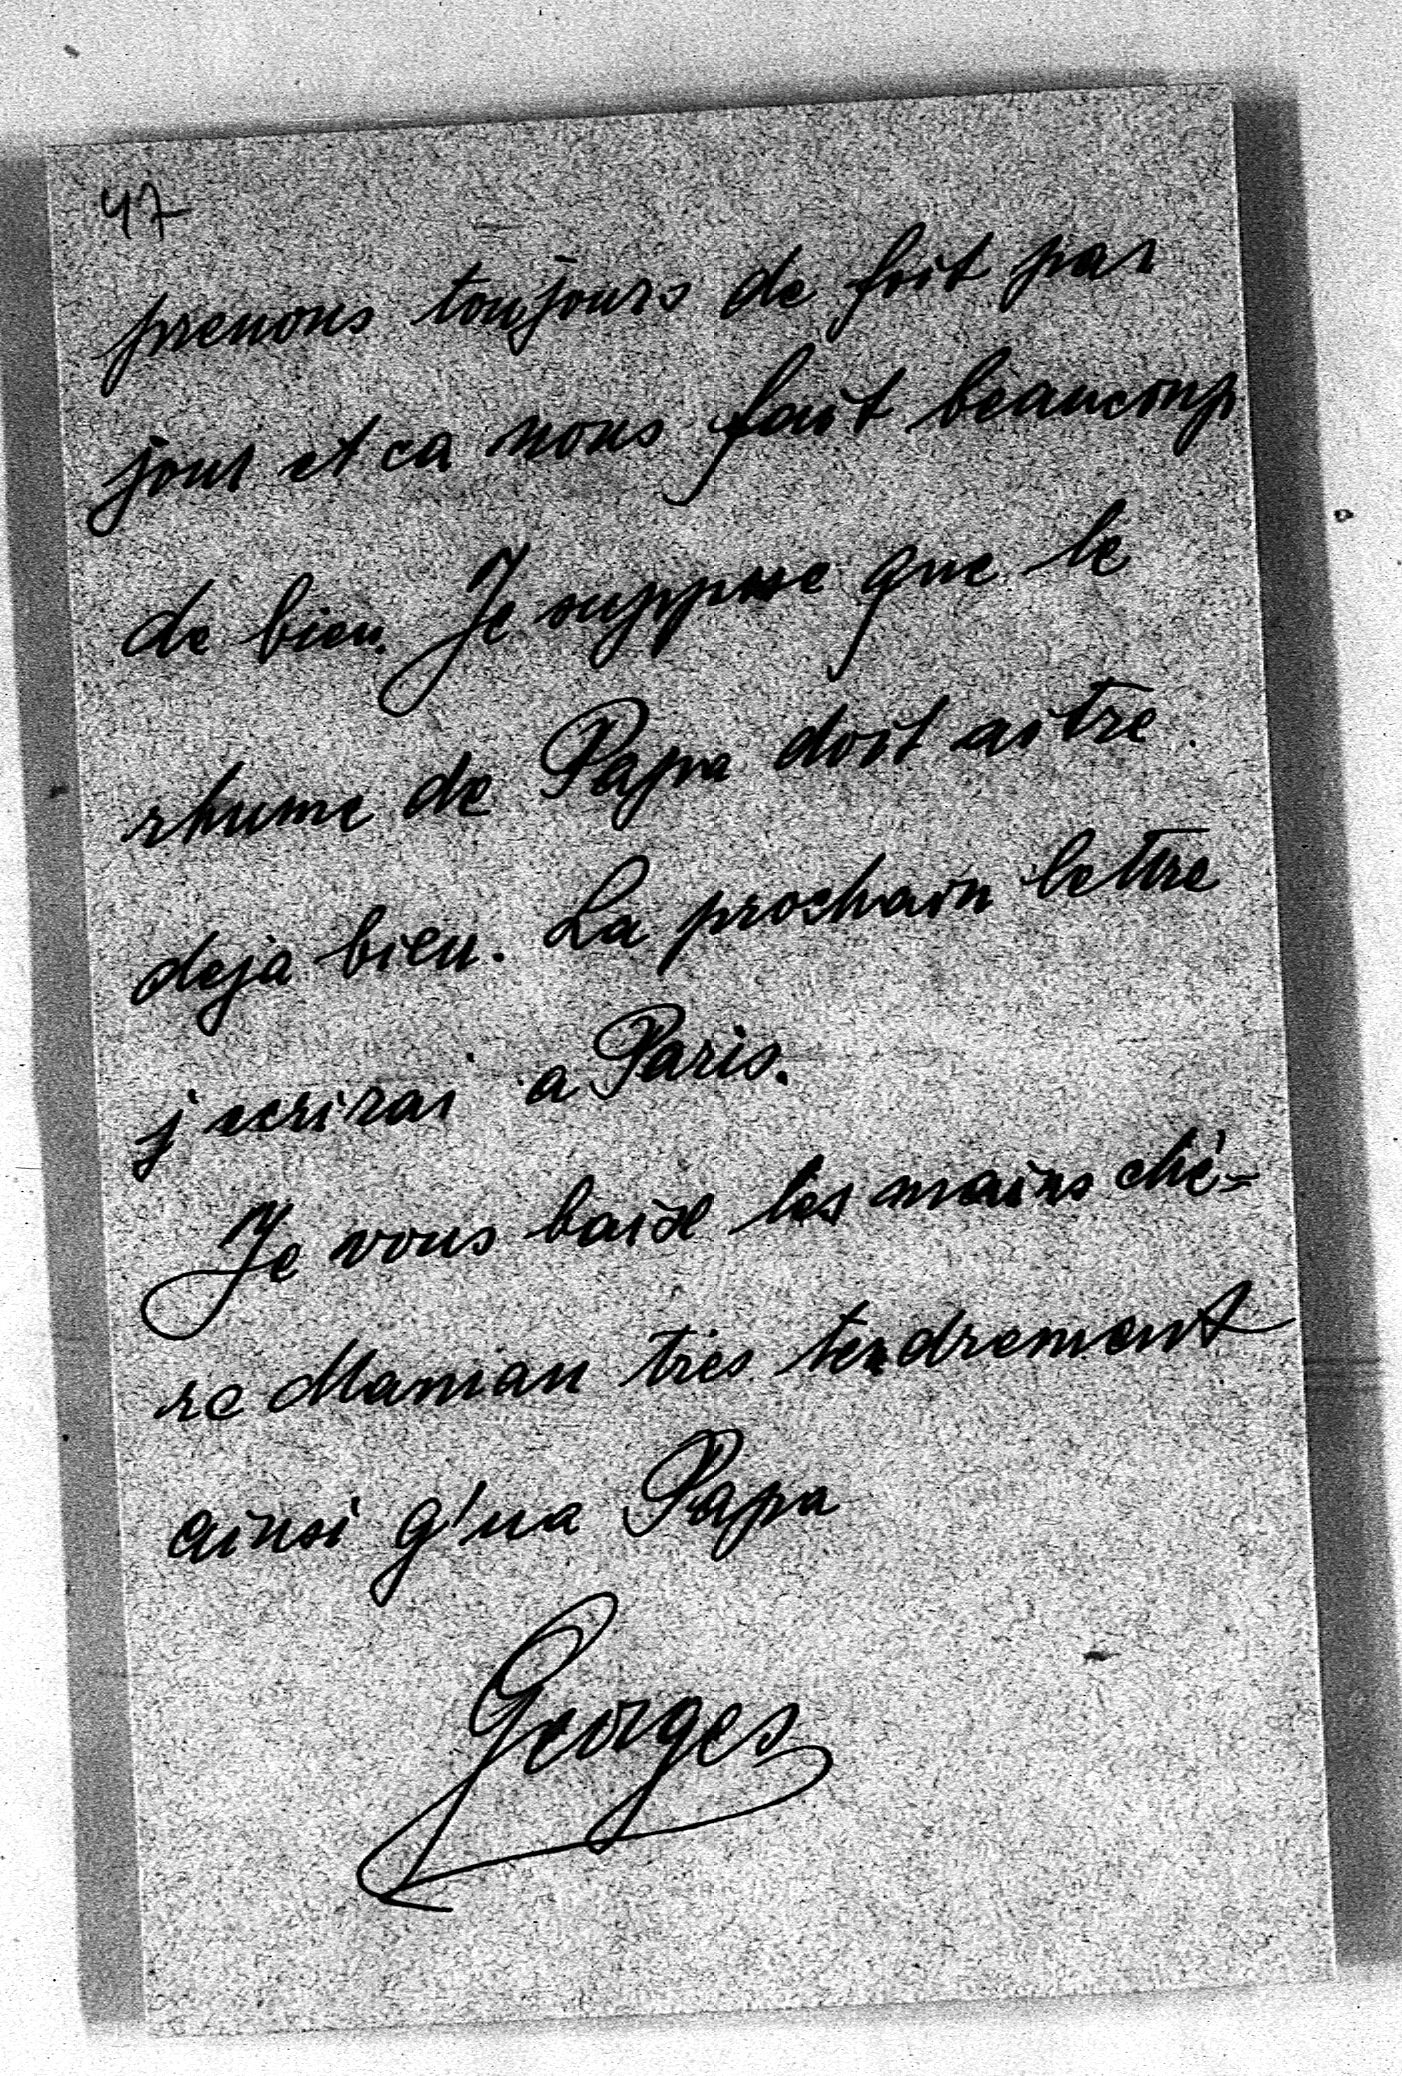 47
prenons toujours de foit par
jour et ca nous fait beaucoup
de bien. Je suppose que le
rhume de Papa doit aître
deja bien. La prochain lettre
j'ecrirai a Paris.
Je vous baise les mains ché-
re Maman très tendrement
ainsi q'ua Papa
Georges